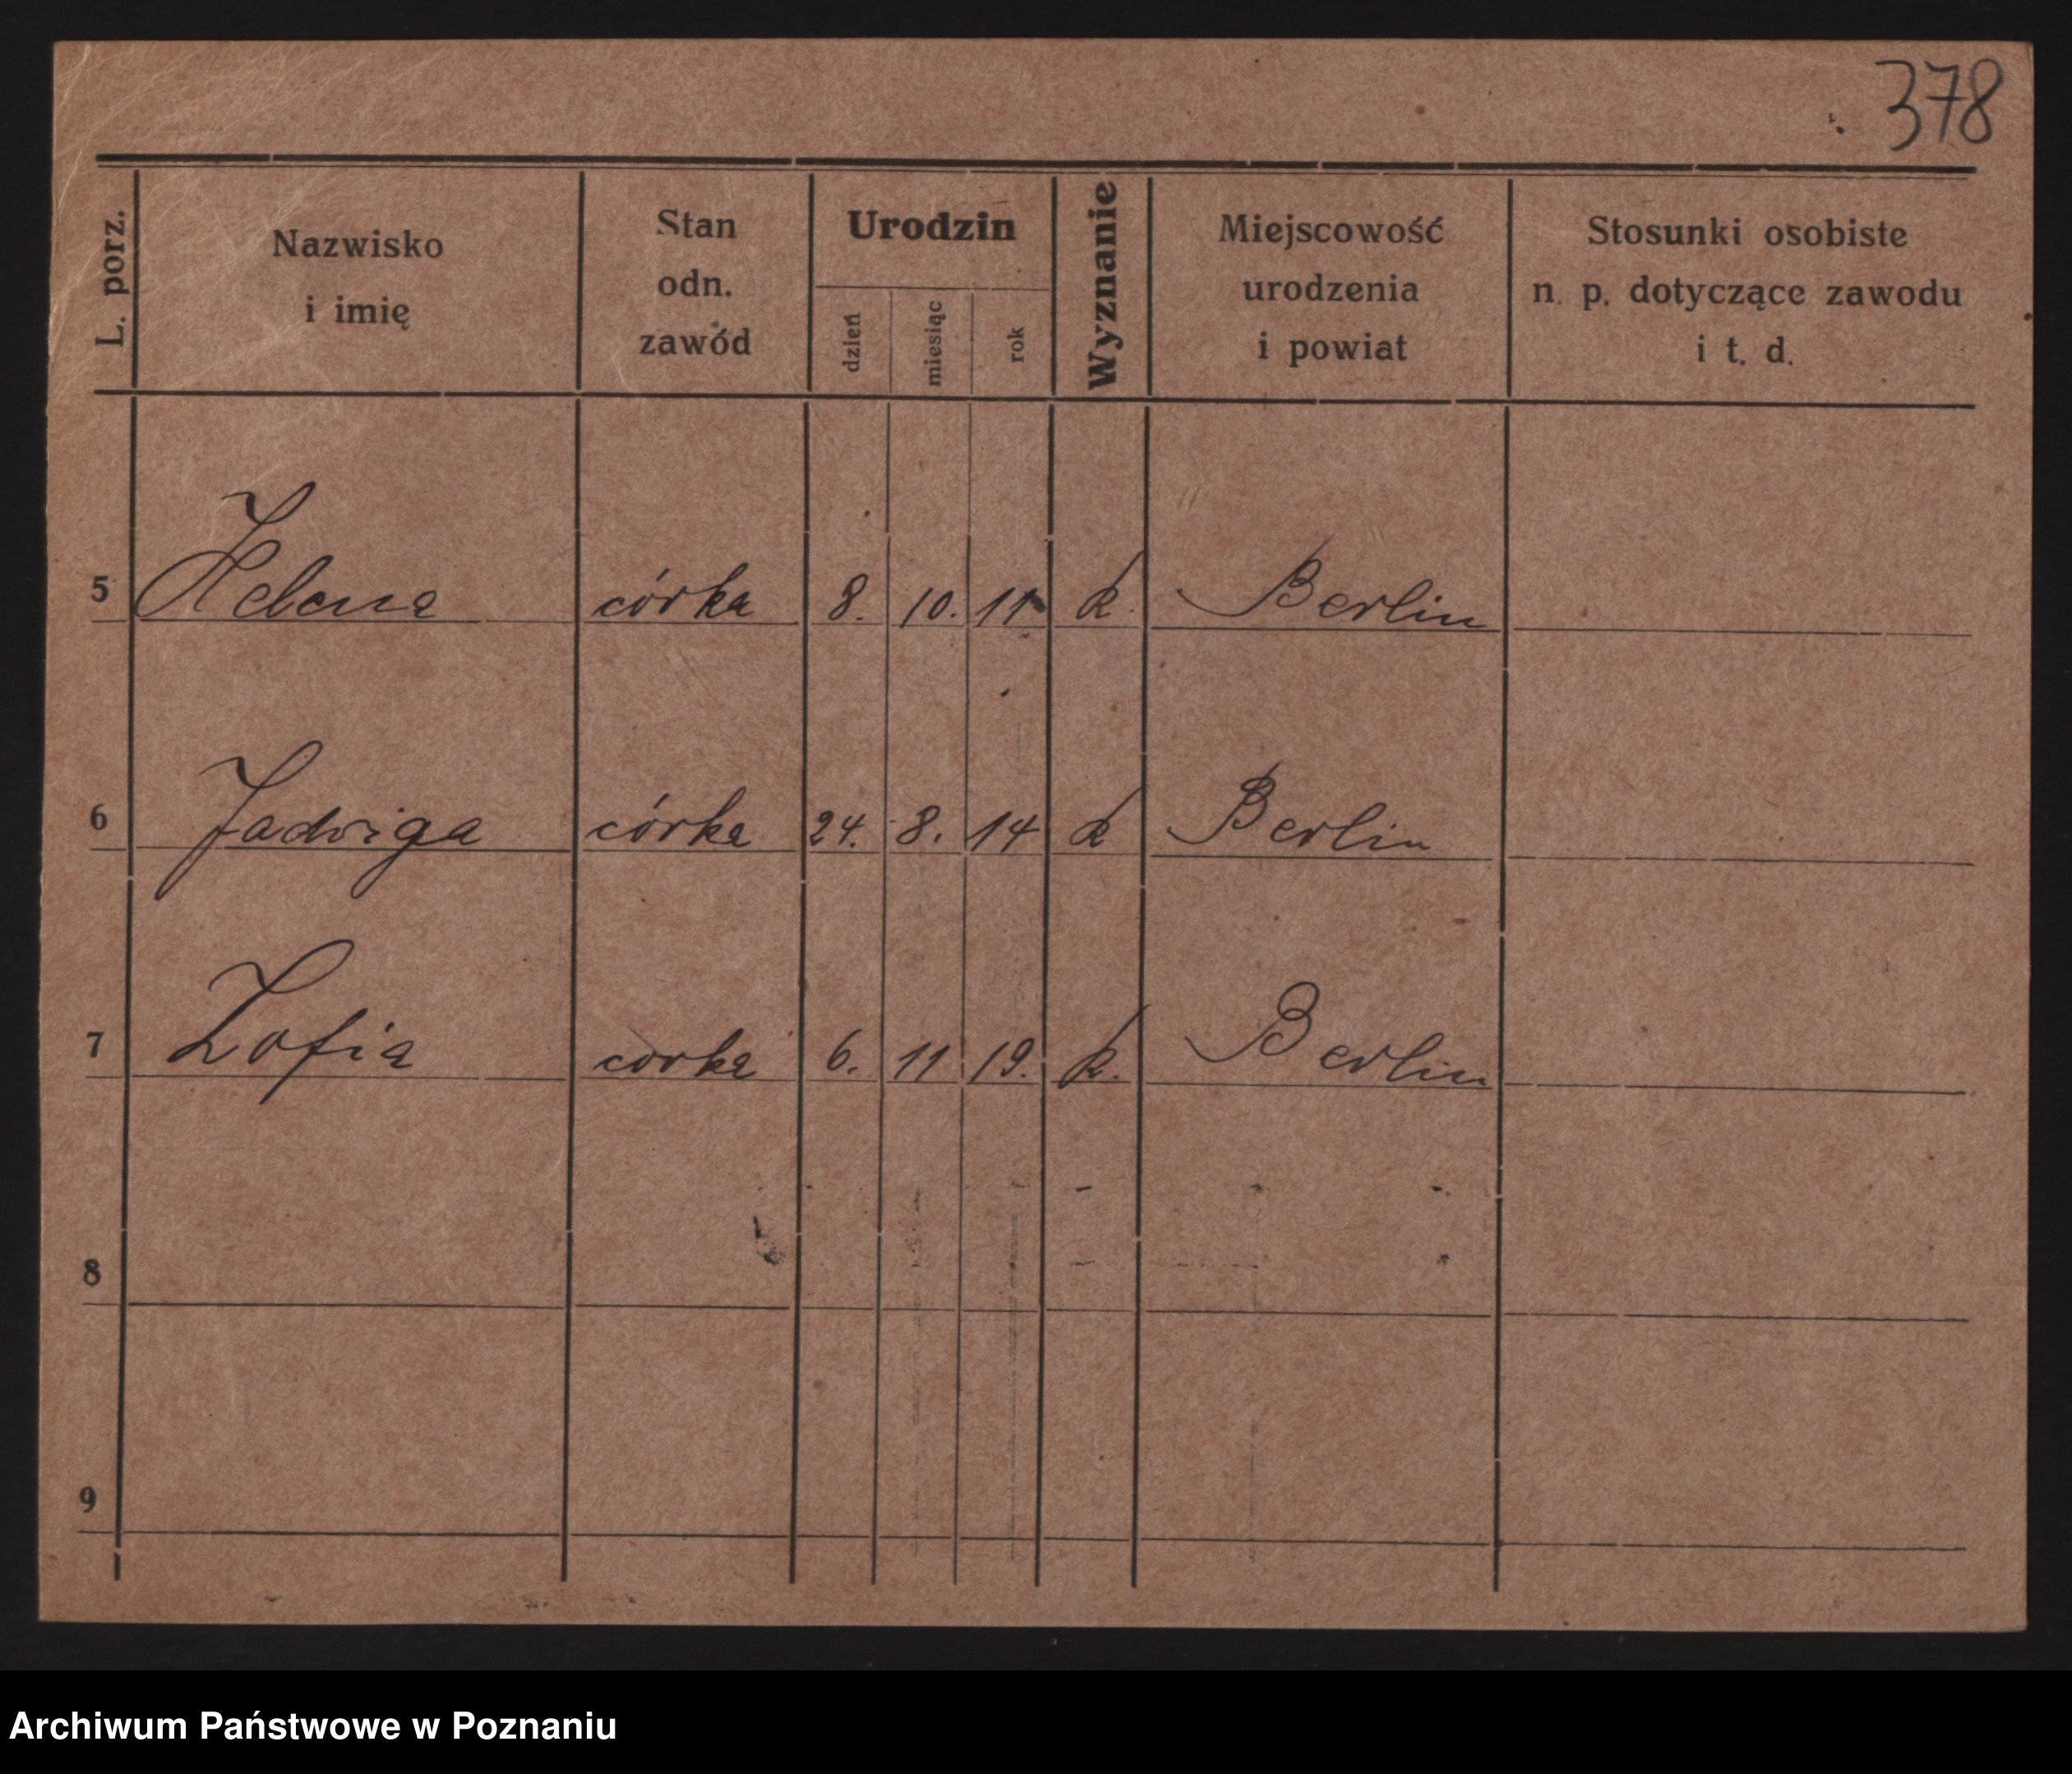 378
L. porz.
Nazwisko
i imię
Stan
odn.
zawód
Urodzin
dzień
miesiąc
rok
Wyznanie
Miejscowość
urodzenia
i powiat
Stosunki osobiste
n. p. dotyczące zawodu
i t. d.
5 Helena córka 8. 10. 11 k. Berlin
6 Jadwiga córka 24. 8. 14 k Berlin
7 Zofia córka 6. 11 19. k. Berlin
8
9
Archiwum Państwowe w Poznaniu